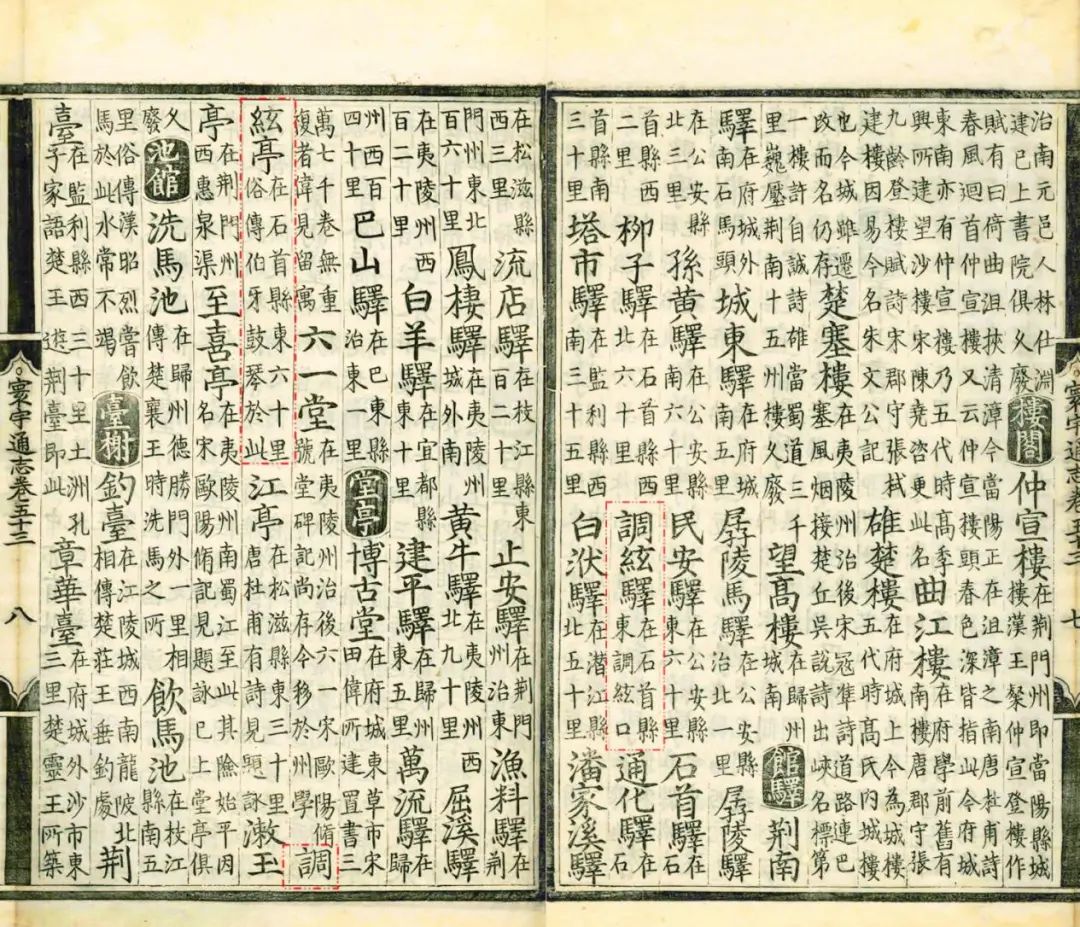 治南元邑人林仕淵建已上書院俱久廢樓閣仲宣樓在荆門州即當陽縣城樓漢王粲仲宣登樓作
賦有曰倚曲沮挾清漳今當陽正在沮漳之南唐杜甫詩春風迴首仲宣樓又云仲宣樓頭春色深皆指此今府城
東南亦有仲宣樓乃五代時髙季興所建望沙樓宋陳堯咨更此名曲江樓在府學前舊有南樓唐郡守張
九齡登樓賦詩宋郡守張栻建樓因易今名朱文公記雄楚樓在府城上今為城樓五代時髙氏内城樓
也今城雖遷改而名仍存楚塞樓在夷陵州治後宋冦凖詩道路連巴塞風烟接楚丘吳說詩出峽名標第
一樓許自誠詩雄當蜀道三千里巍壓荆南十五州樓久廢望髙樓在歸州城南館驛荆南
驛在府城外石馬頭城東驛在府城南五里孱陵馬驛在公安縣治北一里孱陵驛
在公安縣北三里孫黄驛在公安縣南六十里民安驛在公安縣東六十里石首驛在石
首縣西二里柳子驛在石首縣西北六十里調絃驛在石首縣東調絃口通化驛在石
首縣南三十里塔市驛在監利縣西南三十里白洑驛在潛江縣北五十里潘家溪驛
寰宇通志卷五十三 七
在松滋縣西三里流店驛在枝江縣東百二十里止安驛在荆門州治東漁料驛在荆
門州東北百六十里鳳棲驛在夷陵州城外南黄牛驛在夷陵州西北九十里屈溪驛
在夷陵州西百二十里白羊驛在宜都縣東十里建平驛在歸州東五里萬流驛在歸
州西百四十里巴山驛在巴東縣治東一里堂亭博古堂在府城東草市宋田偉所建置書三
萬七千卷無重複者偉見留寓六一堂在夷陵州治後六一宋歐陽脩號堂碑記尚存今移於州學調
絃亭在石首縣東六十里俗傳伯牙鼓琴於此江亭在松滋縣東三十里唐杜甫有詩見題詠漱玉
亭在荆門州西惠泉渠至喜亭在夷陵州南蜀江至此其險始平因名宋歐陽脩記見題詠已上堂亭俱
久廢池館洗馬池在歸州德勝門外一里相傳楚襄王時洗馬之所飲馬池在枝江縣南五
里俗傳漢昭烈嘗飲馬於此水常不竭臺榭釣臺在江陵城西南龍陂北相傳楚莊王垂釣處荆
臺在監利縣西三十里土洲孔子家語楚王遊荆臺即此章華臺在府城外沙市東三里楚靈王所築
寰宇通志卷五十三 八